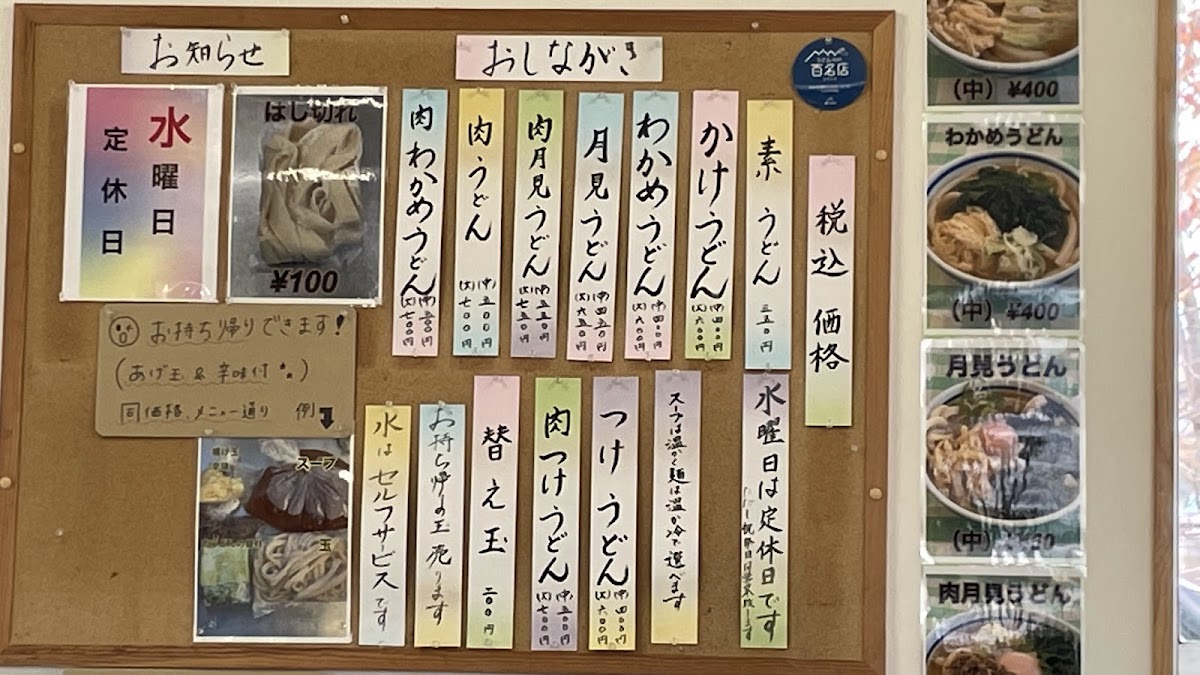 お知らせ
おしながき
百名店
水曜日
定休日
はし切れ
¥100
お持ち帰りできます!
(あげ玉&辛味付)
同価格、メニュー通り 例
スープ
玉
税込価格
素うどん 三五〇円
かけうどん (中)四〇〇円 (大)六〇〇円
わかめうどん (中)四〇〇円 (大)六〇〇円
月見うどん (中)四五〇円 (大)六五〇円
肉月見うどん (中)五五〇円 (大)七五〇円
肉うどん (中)五〇〇円 (大)七〇〇円
肉わかめうどん (中)五〇〇円 (大)七〇〇円
水曜日は定休日です
スープは温かく麺は温か冷で選べます
つけうどん (中)四〇〇円 (大)六〇〇円
肉つけうどん (中)五〇〇円 (大)七〇〇円
替え玉 二〇〇円
お持ち帰りの玉売ります
水はセルフサービスです
(中) ¥400
わかめうどん
(中) ¥400
月見うどん
(中)
肉月見うどん